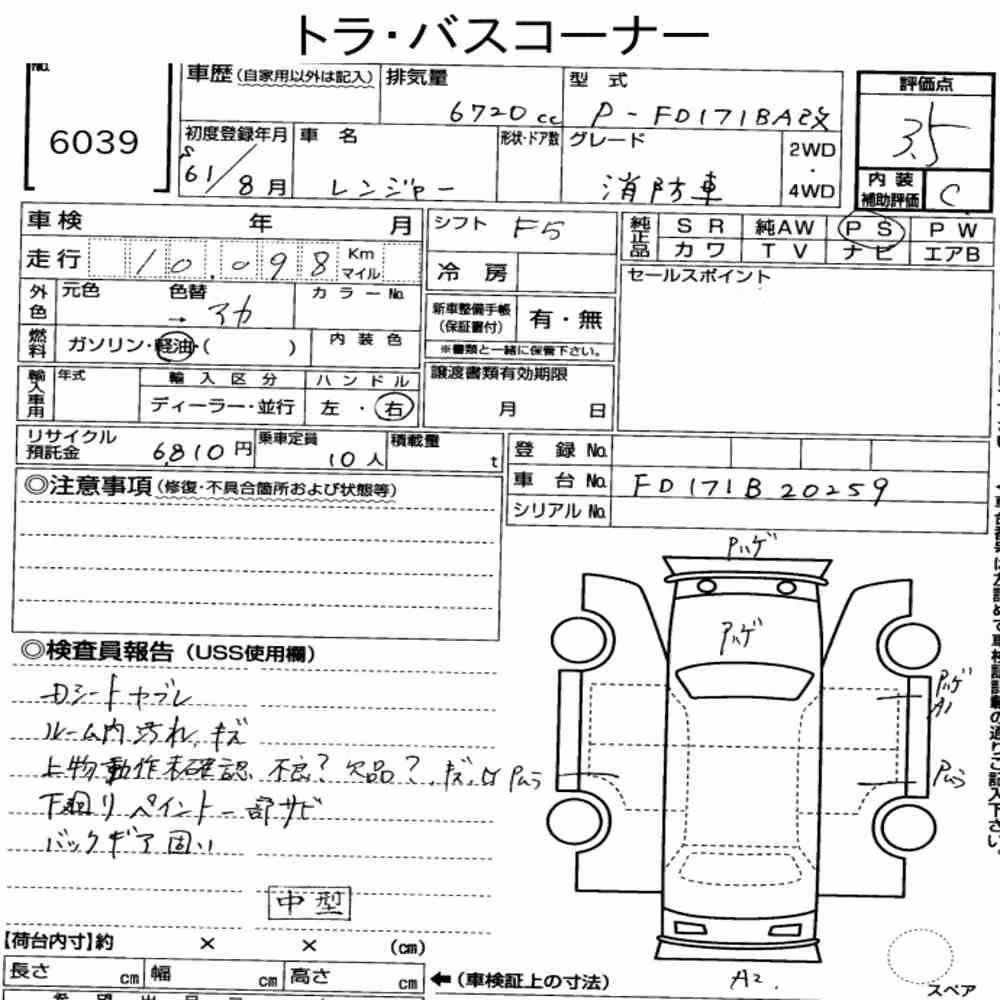 トラ・バスコーナー
No.
6039
車歴 (自家用以外は記入)
排気量
6720cc
型 式
P-FD171BA改
評価点
3.5
初度登録年月
S61/8月
車 名
レンジャー
形状・ドア数
グレード
消防車
2WD
・
4WD
内装
補助評価
C
車検 年 月
走行 10.098 Km マイル
シフト F5
冷 房
純正品
SR 純AW PS PW
カワ TV ナビ エアB
外色
元色 色替
→ アカ
カラーNo.
新車整備手帳
(保証書付)
有・無
※書類と一緒に保管下さい。
セールスポイント
燃料
ガソリン・軽油・( )
内装色
輸入車用
年式
輸入区分
ディーラー・並行
ハンドル
左・右
譲渡書類有効期限
月 日
リサイクル
預託金
6,810円
乗車定員
10人
積載量
t
登録No.
車台No. FD171B 20259
シリアルNo.
◎注意事項(修復・不具合箇所および状態等)
◎検査員報告(USS使用欄)
Dシートヤブレ
ルーム内汚れ、キズ
上物動作未確認 不良?欠品?、キズ、凹 Pムラ
下廻りペイント一部サビ
バックギア固い
中型
Pハゲ
Pハゲ
Pハゲ
A1
Pムラ
A2.
スペア
【荷台内寸】約 × × (cm)
長さ cm 幅 cm 高さ cm
←(車検証上の寸法)